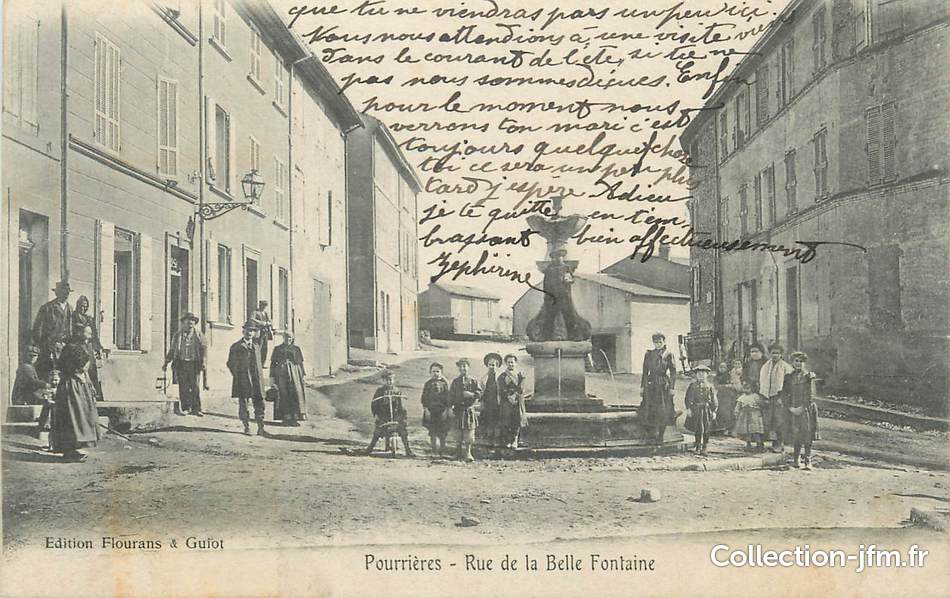 que tu ne viendras pas un peu ici
Nous nous attendions à une visite
dans le courant de l'été, si tu ne
pas nous sommes Enfin
pour le moment nous
verrons ton mari c'est
toujours quelque chose
toi ce sera un peu plus
tard j'espère Adieu
je te quitte en t'em
brassant bien affectueusement
Zephirine
Edition Flourans & Guiot
Pourrières - Rue de la Belle Fontaine
Collection-jfm.fr